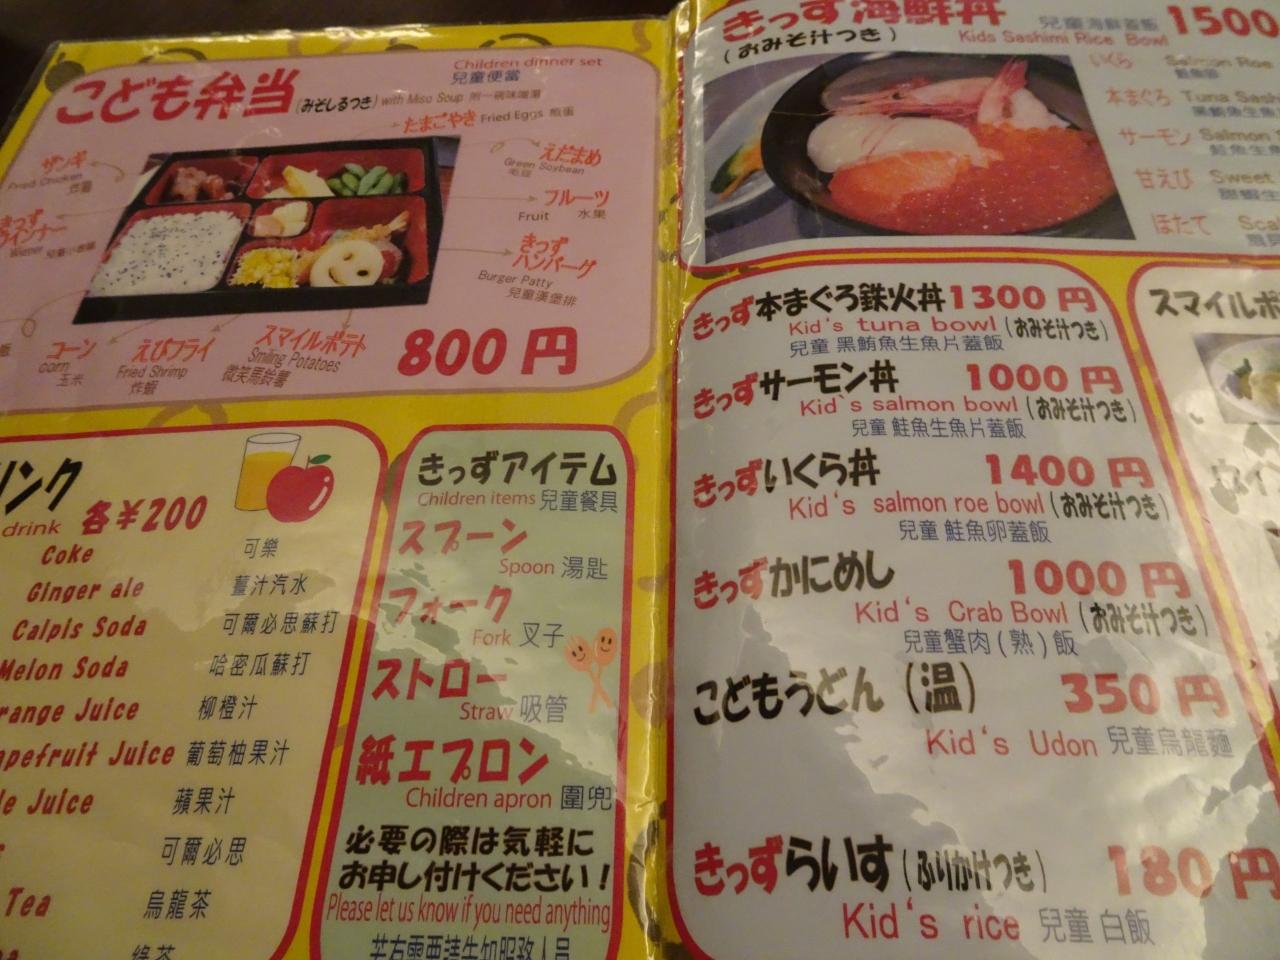 こども弁当(みそしるつき) with Miso Soup 附一碗味噌湯
Children dinner set
兒童便當
たまごやき Fried Eggs 煎蛋
ザンギ
Fried Chicken
炸雞
えだまめ
Green Soybean
毛豆
フルーツ
Fruit 水果
きっず
ハンバーグ
Burger Patty
兒童漢堡排
Wiener
コーン
corn
玉米
えびフライ
Fried Shrimp
炸蝦
スマイルポテト
Smiling Potatoes
微笑馬鈴薯
800 円
リンク
drink 各¥200
Coke 可樂
Ginger ale 薑汁汽水
Calpis Soda 可爾必思蘇打
Melon Soda 哈密瓜蘇打
range Juice 柳橙汁
apefruit Juice 葡萄柚果汁
le Juice 蘋果汁
可爾必思
Tea 烏龍茶
綠茶
きっずアイテム
Children items 兒童餐具
スプーン
Spoon 湯匙
フォーク
Fork 叉子
ストロー
Straw 吸管
紙エプロン
Children apron 圍兜
必要の際は気軽に
お申し付けください!
Please let us know if you need anything
若有需要請告知服務人員
きっず海鮮丼
(おみそ汁つき)
兒童海鮮蓋飯 1500
Kids Sashimi Rice Bowl
いくら Salmon Roe
鮭魚卵
本まぐろ Tuna Sash
黑鮪魚生魚
サーモン Salmon
鮭魚生魚
甘えび Sweet
甜蝦生
ほたて Sca
きっず本まぐろ鉄火丼 1300 円
Kid's tuna bowl (おみそ汁つき)
兒童 黑鮪魚生魚片蓋飯
きっずサーモン丼 1000 円
Kid`s salmon bowl (おみそ汁つき)
兒童 鮭魚生魚片蓋飯
きっずいくら丼 1400 円
Kid's salmon roe bowl (おみそ汁つき)
兒童 鮭魚卵蓋飯
きっずかにめし 1000 円
Kid's Crab Bowl (おみそ汁つき)
兒童蟹肉(熟)飯
こどもうどん(温) 350 円
Kid's Udon 兒童烏龍麵
きっずらいす(ふりかけつき) 180 円
Kid's rice 兒童 白飯
スマイルポ
ウィ